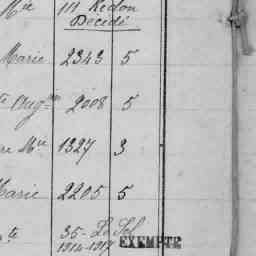 Mie 111 Redon
Décédé
Marie 2343 5
te Aug 2008 5
re Mie 1327 3
Marie 2205 5
te 35- Le Sel
1914-19 EXEMPTE